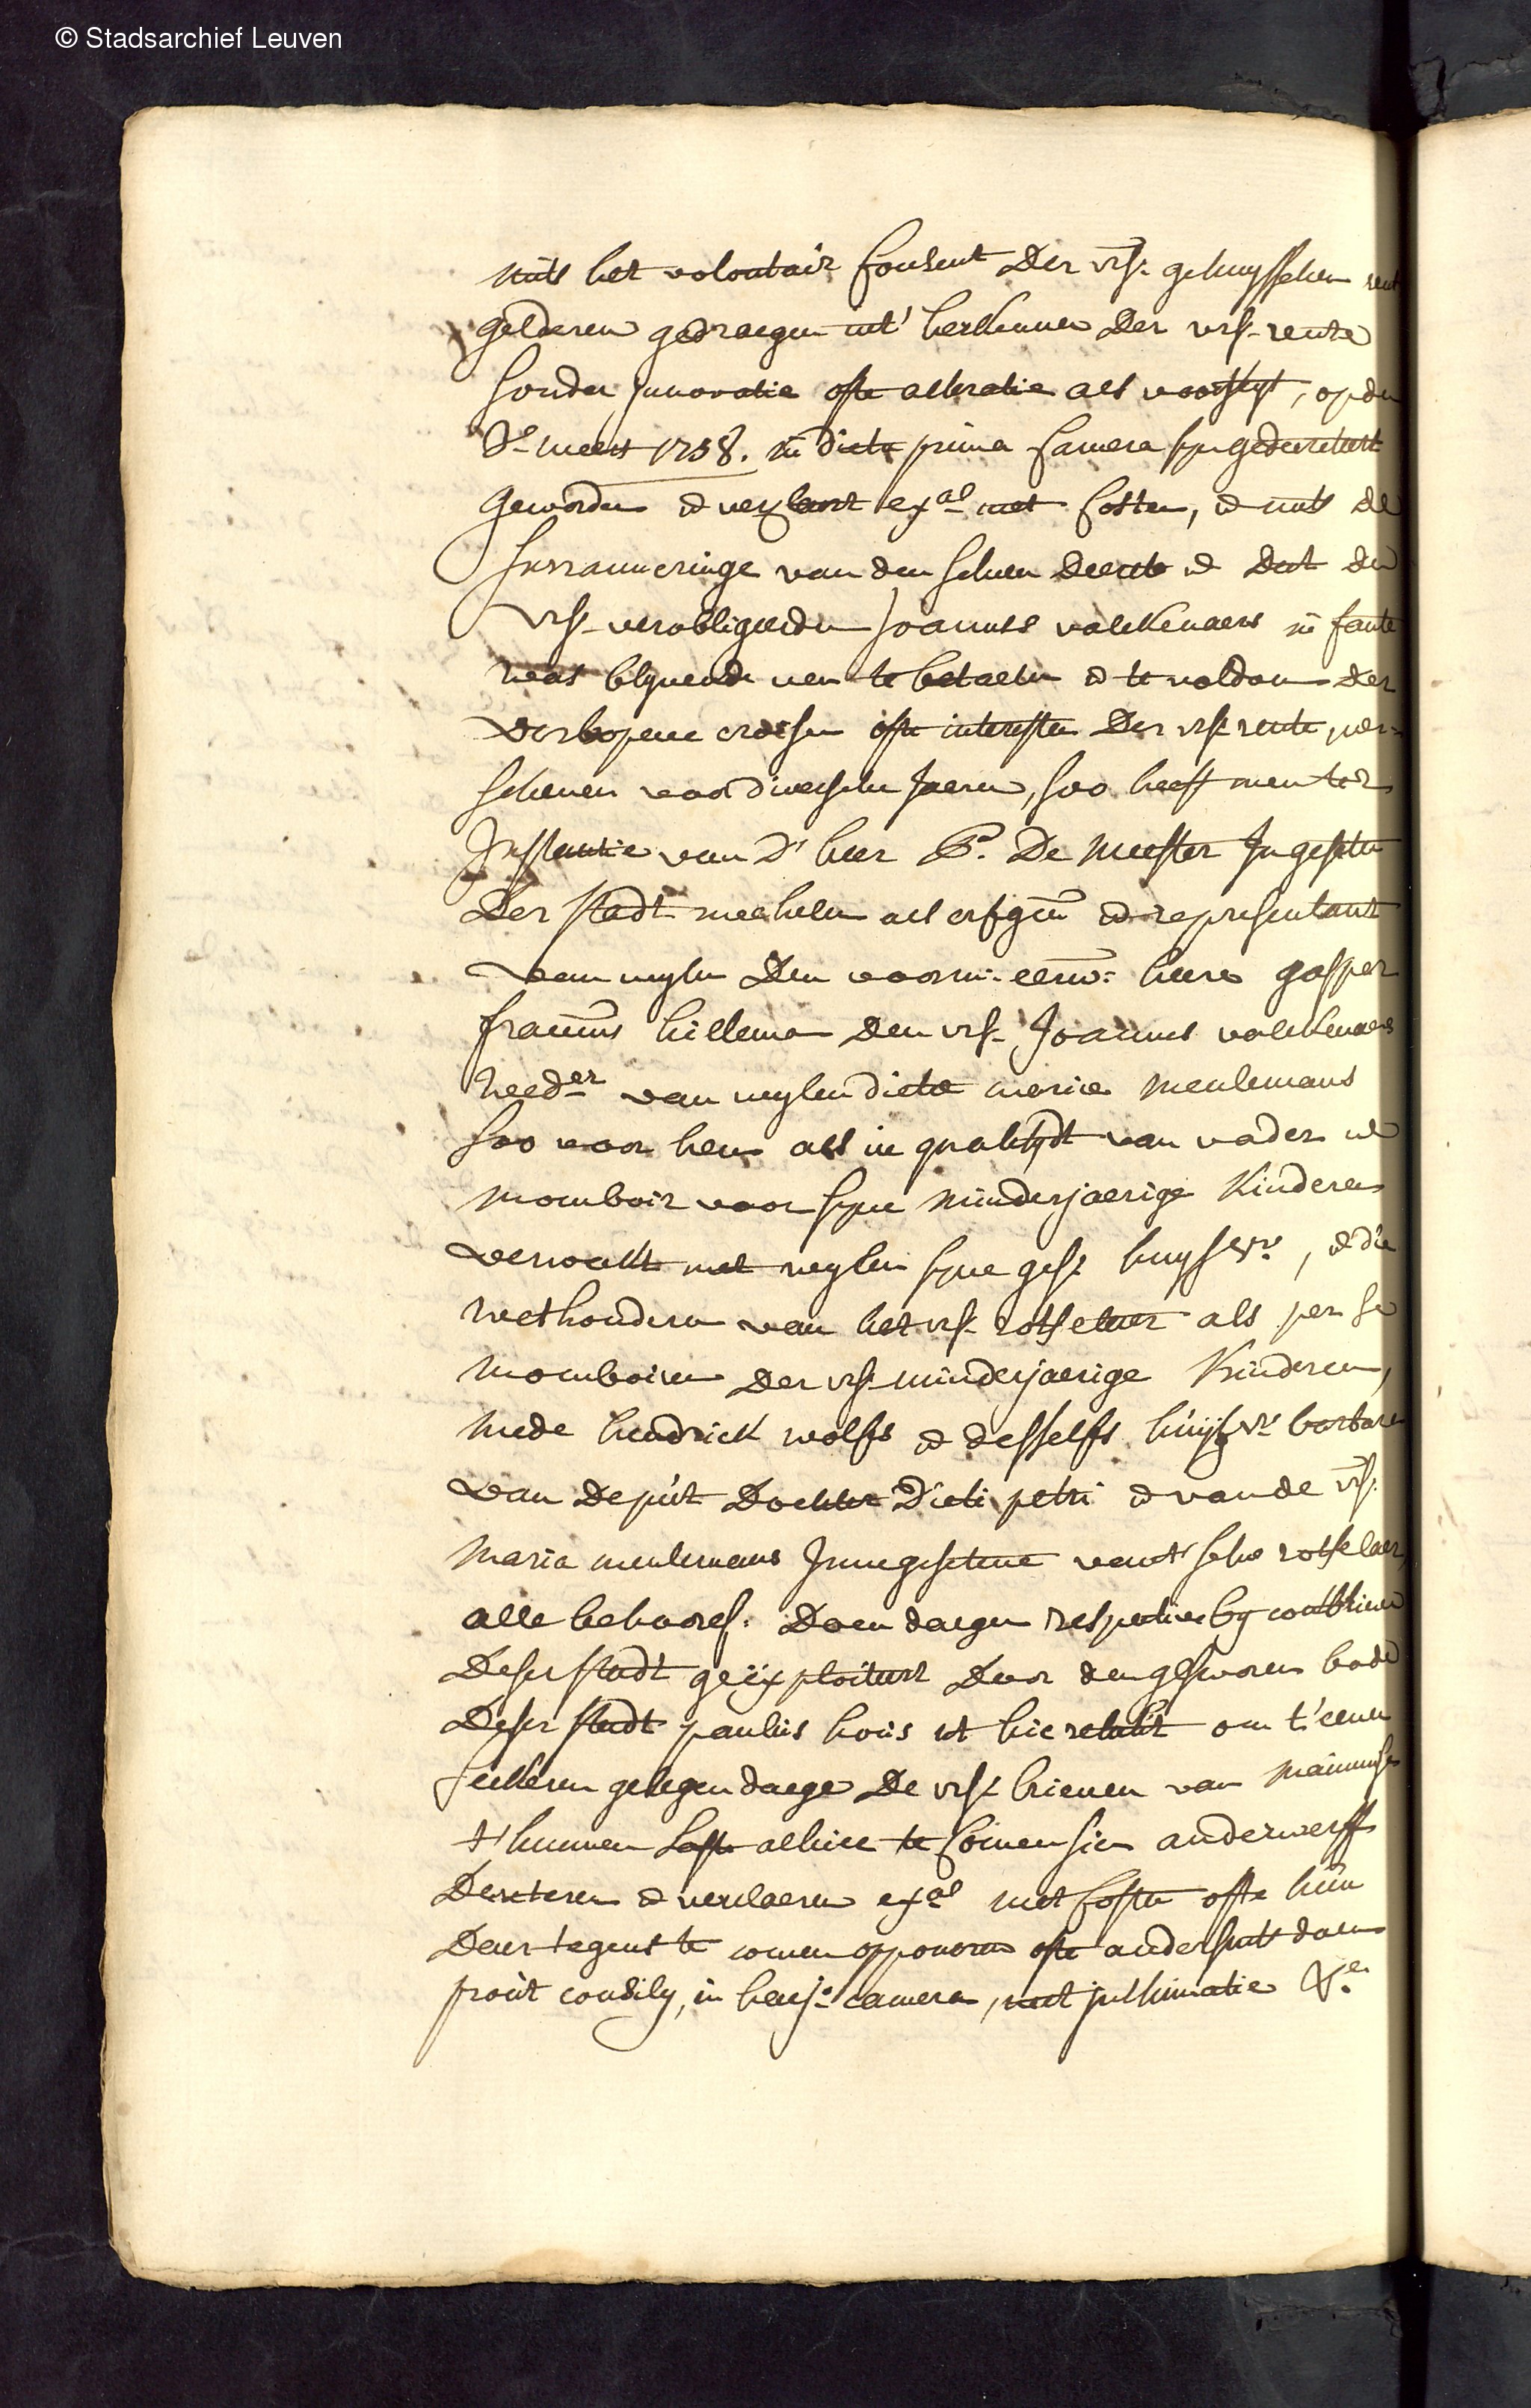 © Stadsarchief Leuven
mits het volontair Consent der vrs. gehuysschen rent
gelderen gedraegen int' herkennen der vrs. rente
sonder innovatie ofte alteratie als voorseyt, op den
meert 1738. in dicta prima Camera syn gedecreteert
geworden ende verclaert exal met Costen, ende mits de
surranneringe van den selven decrete ende dat den
vrs. verobligeerden Joannes valckenaers in faute
was blyvende van te betaelen ende te voldoen der
verloopene croisen ofte interesten der vrs. rente, ver=
schenen voor diversche Jaeren, soo heeft men ter
Instantie van d'heer De Meester Ingeseten
der stadt mechelen als erfgen. ende representant
van wylen den voorn. eerw. heere gasper
francus hillema den vrs. Joannes valckenaers
weeder van wylen dicta marie meulemans
soo voor hem als in qualityt van vader ende
momboir voor syne minderjaerige Kinderen
verweckt met wylen syne gest. huysvr., ende die
wethouderen van het vrs. rotselaer als per se
momboiren der vrs. minderjaerige Kinderen,
mede hendrick wolfs ende desselfs huysvr. barbara
van de put dochter dicti petri ende van de vrs.
Maria meulemans Innegesetene van t' selve rotselaer,
alle behoorel. doen daegen respective by contbrieven
deser stadt geëxploiteert door den gesworen bode
deser stadt paulus hois ut hic retulit om t'eenen
seckeren gelegen daege de vrs. brieven van mainmise
t'hunnen Laste alhier te Comen sien anderwerff
decreteren ende verclaeren exal met Costen ofte hun
daer tegens te comen opponeren ofte andersints doen
prout consily, in hacj. camera, met inthimatie &a.